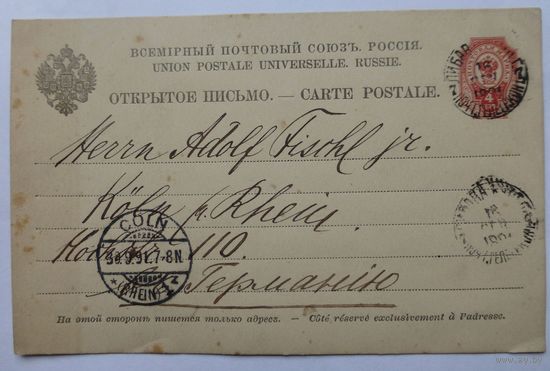 ВСЕМІРНЫЙ ПОЧТОВЫЙ СОЮЗЪ. РОССІЯ.
UNION POSTALE UNIVERSELLE. RUSSIE.
ОТКРЫТОЕ ПИСЬМО. — CARTE POSTALE.
4
Herrn Adolf Fischl jr.
Köln a. Rhein
110.
CÖLN
30.9.91.7-8N.
*(RHEIN)1.z
Германію
На этой сторонѣ пишется только адресъ. — Côté réservé exclusivement à l'adresse.
ay.by